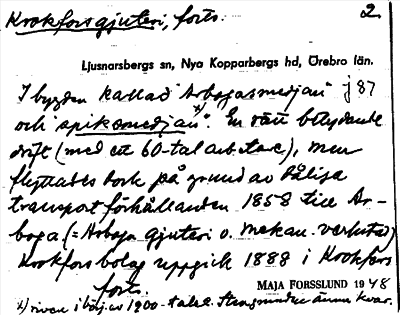 Krokforsgjuteri, forts. 2.
Ljusnarsbergs sn, Nya Kopparbergs hd, Örebro län.
I bygden kallad "Arbogasmedjan" j 87
och "spiksmedjan".x) En rätt betydande
drift (med ett 60-tal arbetare), men
flyttades dock på grund av dåliga
transportförhållanden 1858 till Ar-
boga (= Arboga gjuteri o. mekan. verkstad)
Krokforsbolag uppgick 1888 i Krokfors
forts.
MAJA FORSSLUND 1948
x) riven i början 1900-talet. Stengrunden ännu kvar.